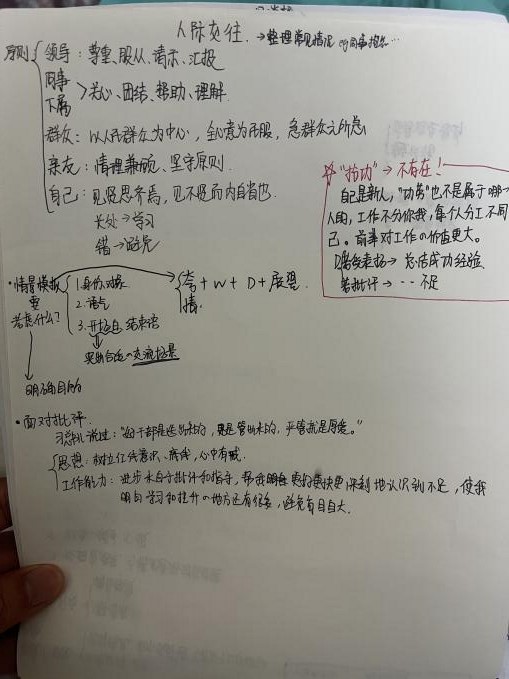 人际交往. →整理常见情况 eg同事抱怨…
原则
领导：尊重、服从、请示、汇报
同事
下属 >关心、团结、帮助、理解.
群众：以人民群众为中心，全心意为民服，急群众之所急
亲友：情理兼顾、坚守原则.
自己：见贤思齐焉，见不贤而内自省也.
长处→学习
错→避免
"抢功"→不存在！
自己是新人，"功劳"也不是属于哪一
人的，工作不分你我，每个人分工不同
己。前辈对工作の价值更大。
若受表扬→总结成功经验
若批评→ ‥不足
·情景模拟
要
考虑什么？
1.身份、对象
2.语气
3.开场白、结束语
夸+W+D+展望.
情.
更贴合の交流场景
明确目的
·面对批评.
说过："好干部都是选出来的，更是管出来的，严管就是厚爱。"
思想：树立红线意识、底线，心中有戒.
工作能力：进步来自于批评和指导，帮我更好更快更深刻地认识到不足，使我
明白学习和提升の地方还有很多，避免盲目自大.